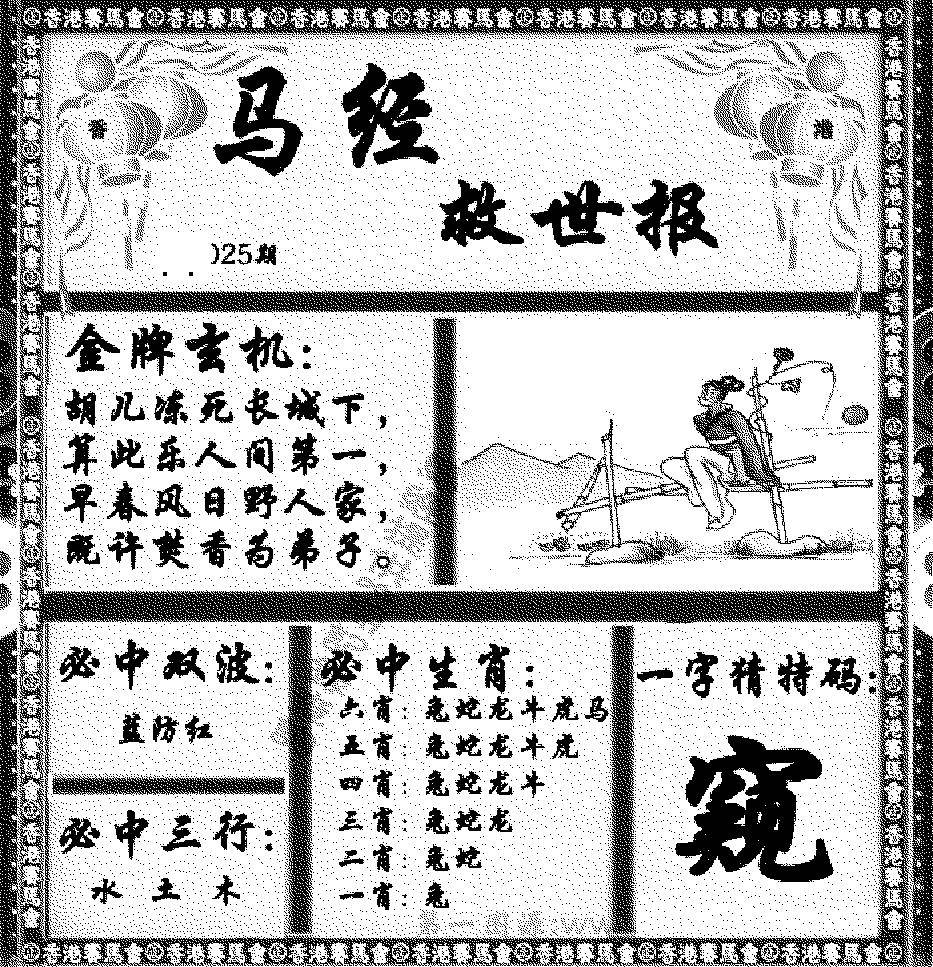 香港賽馬會 香港賽馬會 香港賽馬會 香港賽馬會 香港賽馬會 香港賽馬會 香港賽馬會
香
港
马经
救世报
025期
金牌玄机：
胡儿冻死长城下，
算此乐人间第一，
早春风日野人家，
既许焚香为弟子。
必中双波：
蓝防红
必中三行：
水 土 木
必中生肖：
六肖：兔蛇龙牛虎马
五肖：兔蛇龙牛虎
四肖：兔蛇龙牛
三肖：兔蛇龙
二肖：兔蛇
一肖：兔
一字猜特码：
窥
香港賽馬會 香港賽馬會 香港賽馬會 香港賽馬會 香港賽馬會 香港賽馬會 香港賽馬會